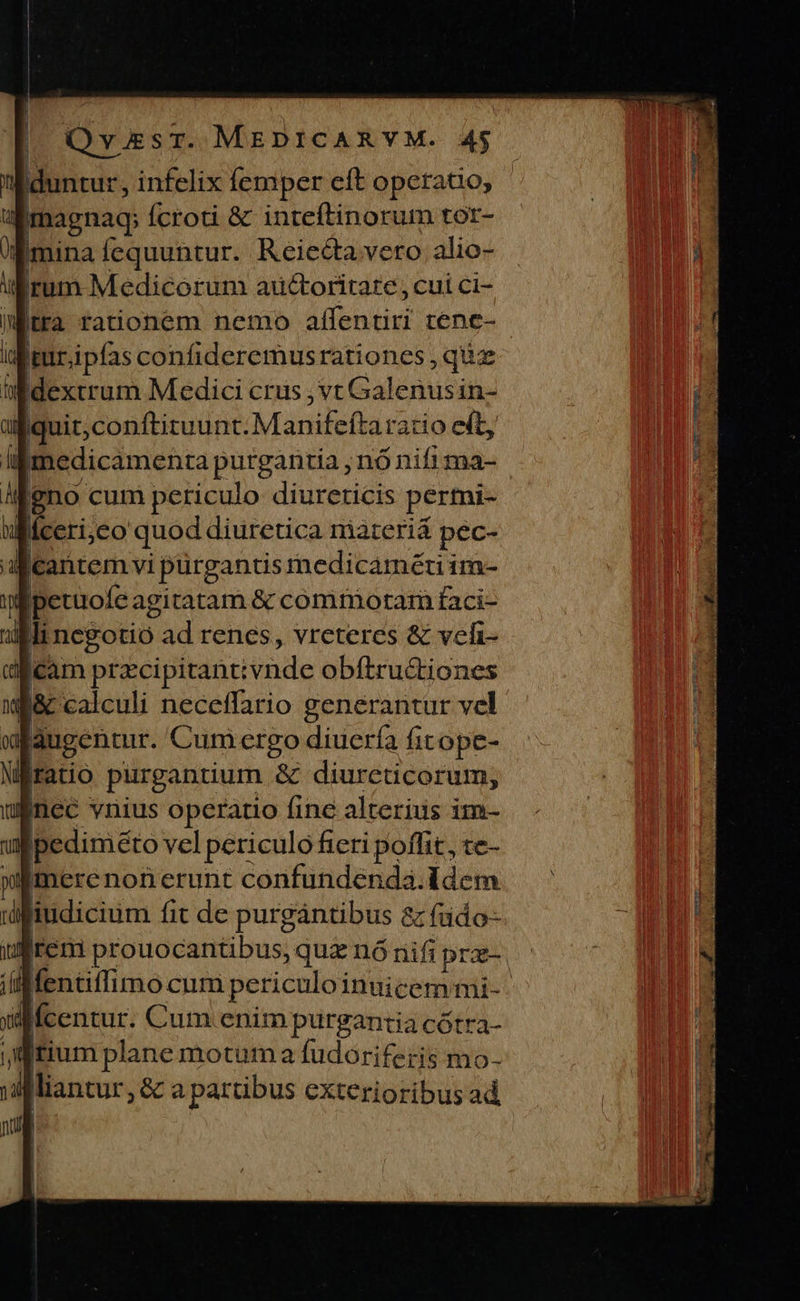 QVÆST. MEDICARVM. 45
duntur, infelix ſemper eſt operatio,
magnaq; ſcroti & inteſtinorum tor-
mina ſequuntur. Reiecta vero alio-
rum Medicorum auctoritate, cui ci-
tra rationem nemo aſſentiri tene-
tur, ipſas conſideremus rationes, quæ
dextrum Medici crus, vt Galenus in-
quit, conſtituunt. Manifeſta ratio eſt,
medicamenta purgantia, nõ niſi ma-
gno cum periculo diureticis permi-
ſceri, eo quod diuretica materiã pec-
cantem vi purgantis medicamẽti im-
petuoſe agitatam & commotam faci-
li negotio ad renes, vreteres & veſi-
cam præcipitant: vnde obſtructiones
& calculi neceſſario generantur vel
augentur. Cum ergo diuerſa ſit ope-
ratio purgantium & diureticorum,
nec vnius operatio ſine alterius im-
pedimẽto vel periculo fieri poſſit, te-
mere non erunt confundenda. Idem
iudicium fit de purgantibus & ſudo-
rem prouocantibus, quæ nõ niſi præ-
ſentiſſimo cum periculo inuicem mi-
ſcentur. Cum enim purgantia cõtra-
rium plane motum a ſudoriferis mo-
liantur, & a partibus exterioribus ad